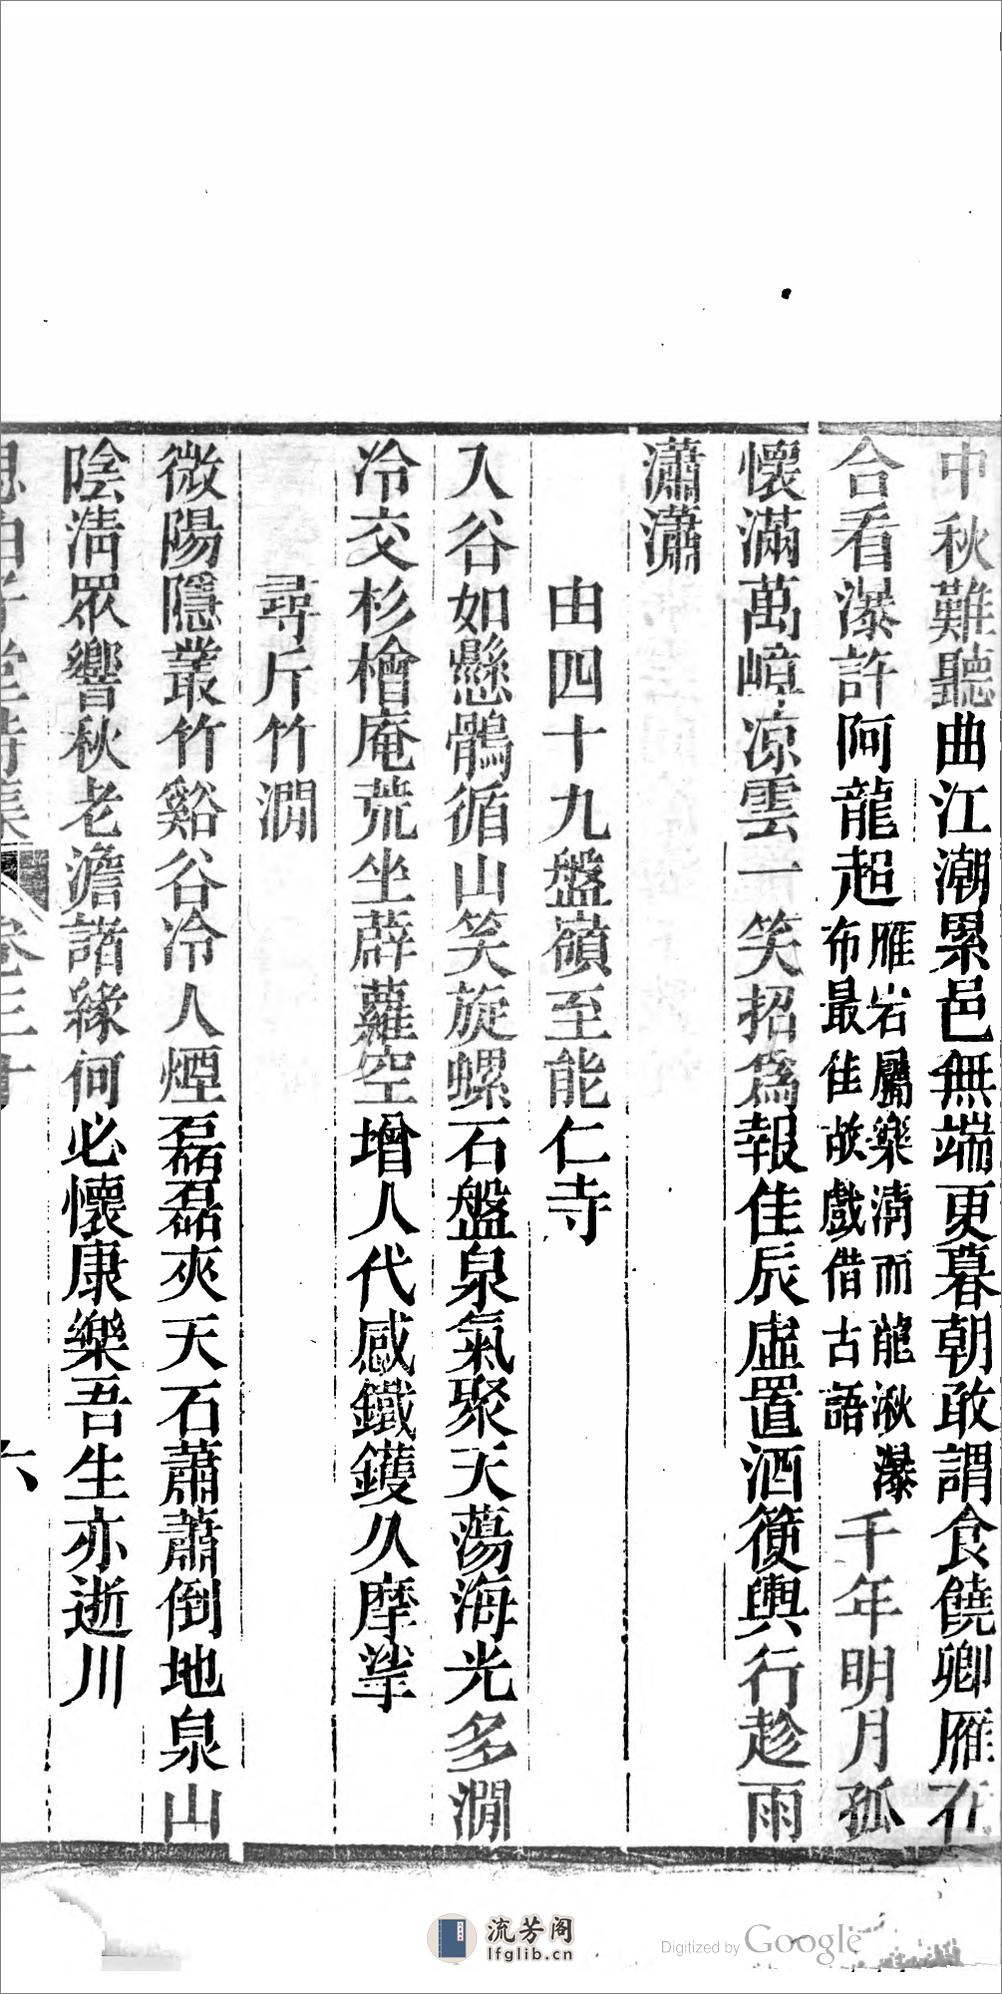 中秋難聽曲江潮累邑無端更暮朝敢謂食饒卿雁在
合看瀑許阿龍超雁岩屬樂淸而龍湫瀑布最佳故戲借古語千年明月孤
懷滿萬嶂凉雲一笑招爲報佳辰虛置酒箯輿行趁雨
瀟瀟
由四十九盤嶺至能仁寺
入谷如懸鶻循山笑旋螺石盤泉氣聚天蕩海光多澗
冷交杉檜庵荒坐薜蘿空增人代感鐵鑊久摩挲
尋斤竹澗
微陽隱叢竹谿谷冷人煙磊磊夾天石蕭蕭倒地泉山
陰淸眾響秋老澹諸緣何必懷康樂吾生亦逝川
思伯子堂詩集 卷三十 六
流芳阁
lfglib.cn
Digitized by Google